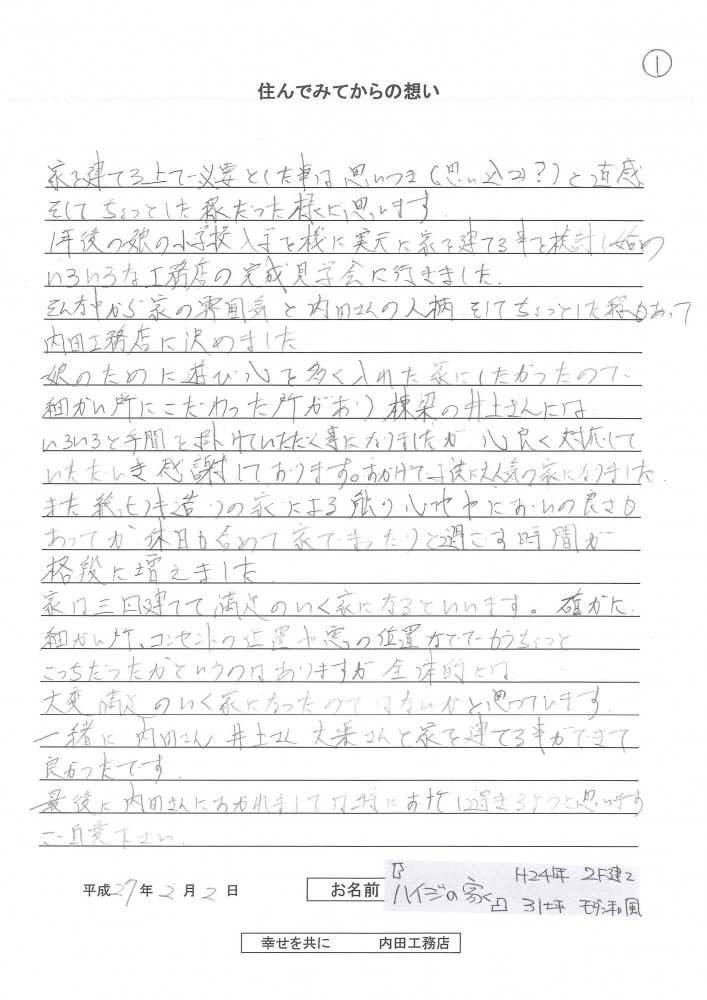 ①
住んでみてからの想い
家を建てる上で必要とした事は思いつき(思い込み?)と直感
そしてちょっとした縁だった様に思います。
1年後の娘の小学校入学を機に実元に家を建てる事を検討し始め
いろいろな工務店の完成見学会に行きました。
そんな中から家の雰囲気と内田さんの人柄、そしてちょっとした縁もあって
内田工務店に決めました
娘のために遊び心を多く入れた家にしたかったので、
細かい所にこだわった所があり棟梁の井上さんには
いろいろと手間を掛けていただく事になりましたが 心良く対応して
いただいき感謝しております。おかげで子供に大人気の家になりました
また 造りの家による触り心地やにおいの良さも
あってか 休日も含めて家でまったりと過ごす時間が
格段に増えました。
家は三回建てて満足のいく家になるといいます。確かに
細かい所、コンセントの位置や窓の位置などでもうちょっと
こっちだったかというのはありますが 全体的には
大変満足のいく家になったのではないかと思っています。
一緒に 内田さん 井上さん 大栄さんと家を建てる事ができて
良かったです。
最後に内田さんにおかれましては 思います
ご自愛下さい。
平成27年2月2日
お名前 『ハイジの家』 H24年 2F建て
31坪 モダン和風
幸せを共に 内田工務店